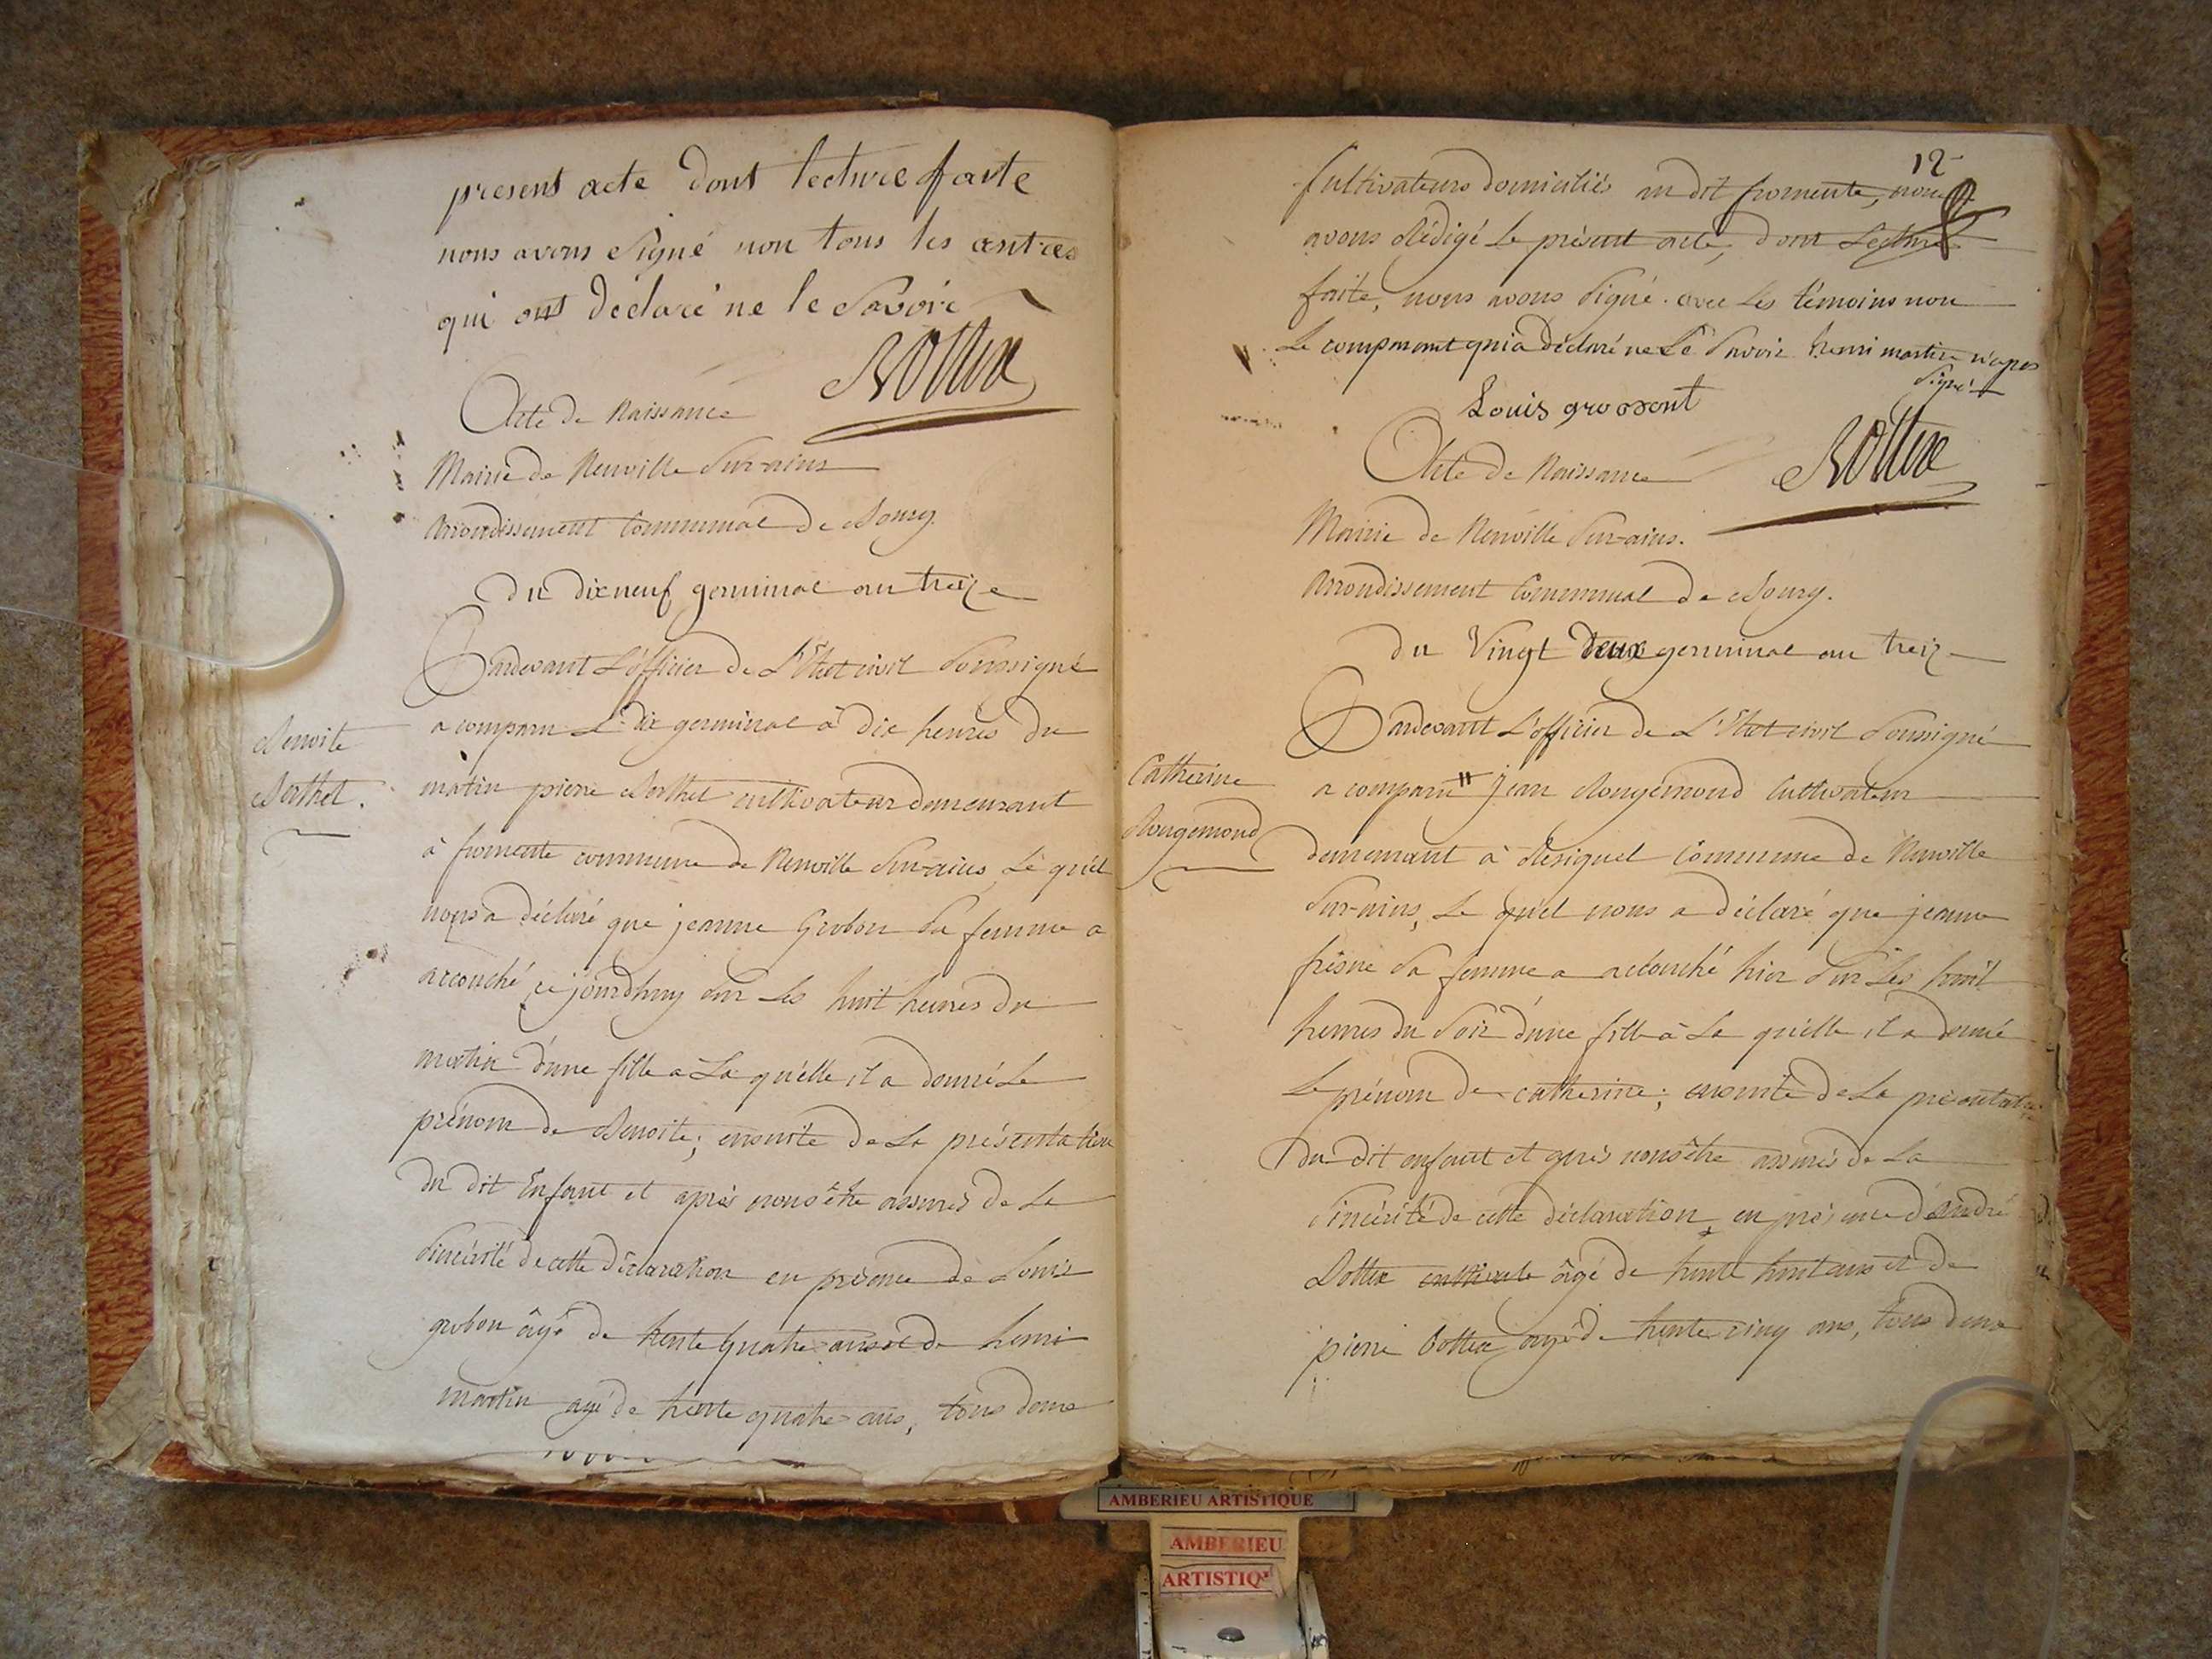 present acte dont lecture faite
nous avons signé non tous les autres
qui ont déclaré ne le savoir
Acte de Naissance
Mairie de Neuville sur-ains
Arrondissement Communal de Bourg.
du dix neuf germinal an treize
Pardevant L'officier de L'Etat civil soussigné
a comparu Le dix germinal à dix heures du
Benoite
Berthet.
matin pierre Berthet cultivateur demeurant
à fromente commune de Neuville sur-ains, Le quel
nous a déclaré que jeanne Grobon sa femme a
accouché cejourdhuy sur les huit heures du
matin d'une fille a La quelle il a donné Le
prénom de Benoite; ensuite de La présentation
du dit Enfant et après nous être assurés de La
sincérité de cette déclaration en présence de Louis
grobon âgé de trente quatre ans et de henri
martin agé de trente quatre ans, tous deux
12
Cultivateurs domiciliés au dit fromente, nous
avons Rédigé Le présent acte, dont Lecture
faite, nous avons signé avec Les témoins non
Le comparant qui a déclaré ne Le savoir henri martin n'a pas
signé
Louis
Acte de Naissance
Mairie de Neuville sur-ains.
Arrondissement Communal de Bourg.
du Vingt deux germinal an treize
Pardevant L'officier de L'Etat civil soussigné
Catherine
Rougemond
a comparu jean Rougemond Cultivateur
demeurant à Resignel Commune de Neuville
sur-ains, Le quel nous a déclaré que jeanne
frésne sa femme a accouché hier sur Les huit
heures du soir d'une fille à La quelle il a donné
Le prénom de catherine; ensuite de La présentation
du dit enfant et après nous être assurés de La
sincérité de cette déclaration, en présence d'André
Bottex âgé de trente huit ans et de
pierre Bottex agé de trente cinq ans, tous deux
AMBERIEU ARTISTIQUE
AMBERIEU
ARTISTIQ